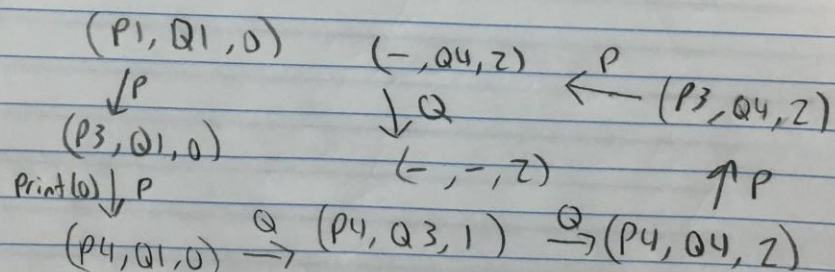 (P1, Q1, 0)
↓ P
(P3, Q1, 0)
Print(0) ↓ P
(P4, Q1, 0) Q → (P4, Q3, 1) Q → (P4, Q4, 2)
↑ P
(P3, Q4, 2)
← P
(-, Q4, 2)
↓ Q
(-, -, 2)